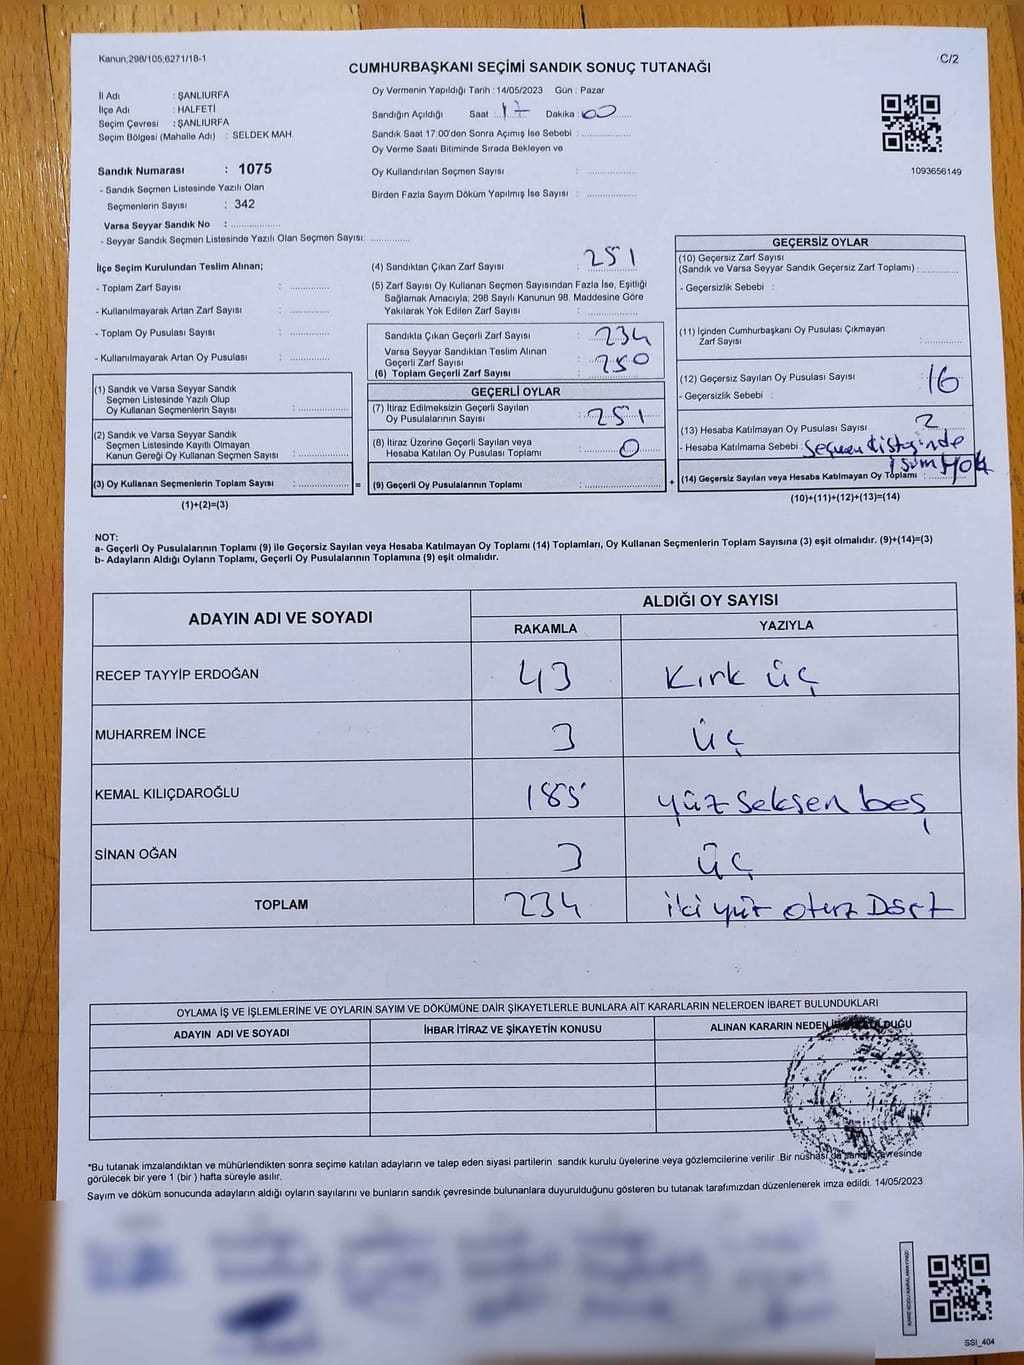 Kanun,298/105,6271/18-1
C/2
CUMHURBAŞKANI SEÇİMİ SANDIK SONUÇ TUTANAĞI
İl Adı : ŞANLIURFA
İlçe Adı : HALFETİ
Seçim Çevresi : ŞANLIURFA
Seçim Bölgesi (Mahalle Adı) : SELDEK MAH.
Sandık Numarası : 1075
- Sandık Seçmen Listesinde Yazılı Olan
Seçmenlerin Sayısı : 342
Varsa Seyyar Sandık No : ..................
- Seyyar Sandık Seçmen Listesinde Yazılı Olan Seçmen Sayısı: .............
Oy Vermenin Yapıldığı Tarih : 14/05/2023 Gün : Pazar
Sandığın Açıldığı Saat : 17 Dakika : 00
Sandık Saat 17.00'den Sonra Açılmış İse Sebebi : ..................
Oy Verme Saati Bitiminde Sırada Bekleyen ve
Oy Kullandırılan Seçmen Sayısı : ..................
Birden Fazla Sayım Döküm Yapılmış İse Sayısı : ..................
1093656149
İlçe Seçim Kurulundan Teslim Alınan;
- Toplam Zarf Sayısı : ..............
- Kullanılmayarak Artan Zarf Sayısı : ..............
- Toplam Oy Pusulası Sayısı : ..............
- Kullanılmayarak Artan Oy Pusulası : ..............
(1) Sandık ve Varsa Seyyar Sandık
Seçmen Listesinde Yazılı Olup
Oy Kullanan Seçmenlerin Sayısı : ..................
(2) Sandık ve Varsa Seyyar Sandık
Seçmen Listesinde Kayıtlı Olmayan
Kanun Gereği Oy Kullanan Seçmen Sayısı : ..................
(3) Oy Kullanan Seçmenlerin Toplam Sayısı : .................. =
(1)+(2)=(3)
(4) Sandıktan Çıkan Zarf Sayısı : 251
(5) Zarf Sayısı Oy Kullanan Seçmen Sayısından Fazla İse, Eşitliği
Sağlamak Amacıyla; 298 Sayılı Kanunun 98. Maddesine Göre
Yakılarak Yok Edilen Zarf Sayısı : ..................
Sandıkta Çıkan Geçerli Zarf Sayısı : 234
Varsa Seyyar Sandıktan Teslim Alınan
Geçerli Zarf Sayısı : 250
(6) Toplam Geçerli Zarf Sayısı : ..................
GEÇERLİ OYLAR
(7) İtiraz Edilmeksizin Geçerli Sayılan
Oy Pusulalarının Sayısı : 251
(8) İtiraz Üzerine Geçerli Sayılan veya
Hesaba Katılan Oy Pusulası Toplamı : 0
(9) Geçerli Oy Pusulalarının Toplamı : .................. +
GEÇERSİZ OYLAR
(10) Geçersiz Zarf Sayısı
(Sandık ve Varsa Seyyar Sandık Geçersiz Zarf Toplamı) : ............
- Geçersizlik Sebebi :
(11) İçinden Cumhurbaşkanı Oy Pusulası Çıkmayan
Zarf Sayısı : ............
(12) Geçersiz Sayılan Oy Pusulası Sayısı : 16
- Geçersizlik Sebebi :
(13) Hesaba Katılmayan Oy Pusulası Sayısı : 2
- Hesaba Katılmama Sebebi : Seçmen listesinde
isim Yok
(14) Geçersiz Sayılan veya Hesaba Katılmayan Oy Toplamı : ............
(10)+(11)+(12)+(13)=(14)
NOT:
a- Geçerli Oy Pusulalarının Toplamı (9) ile Geçersiz Sayılan veya Hesaba Katılmayan Oy Toplamı (14) Toplamları, Oy Kullanan Seçmenlerin Toplam Sayısına (3) eşit olmalıdır. (9)+(14)=(3)
b- Adayların Aldığı Oyların Toplamı, Geçerli Oy Pusulalarının Toplamına (9) eşit olmalıdır.
ADAYIN ADI VE SOYADI ALDIĞI OY SAYISI
RAKAMLA YAZIYLA
RECEP TAYYİP ERDOĞAN 43 Kırk üç
MUHARREM İNCE 3 üç
KEMAL KILIÇDAROĞLU 185 yüz seksen beş
SİNAN OĞAN 3 üç
TOPLAM 234 iki yüz otuz Dört
OYLAMA İŞ VE İŞLEMLERİNE VE OYLARIN SAYIM VE DÖKÜMÜNE DAİR ŞİKAYETLERLE BUNLARA AİT KARARLARIN NELERDEN İBARET BULUNDUKLARI
ADAYIN ADI VE SOYADI İHBAR İTİRAZ VE ŞİKAYETİN KONUSU ALINAN KARARIN NEDEN
*Bu tutanak imzalandıktan ve mühürlendikten sonra seçime katılan adayların ve talep eden siyasi partilerin sandık kurulu üyelerine veya gözlemcilerine verilir .Bir nüshası da sandık çevresinde
görülecek bir yere 1 (bir ) hafta süreyle asılır.
Sayım ve döküm sonucunda adayların aldığı oyların sayılarını ve bunların sandık çevresinde bulunanlara duyurulduğunu gösteren bu tutanak tarafımızdan düzenlenerek imza edildi. 14/05/2023
KARE KODU KARALAMAYINIZ!
SSI_404